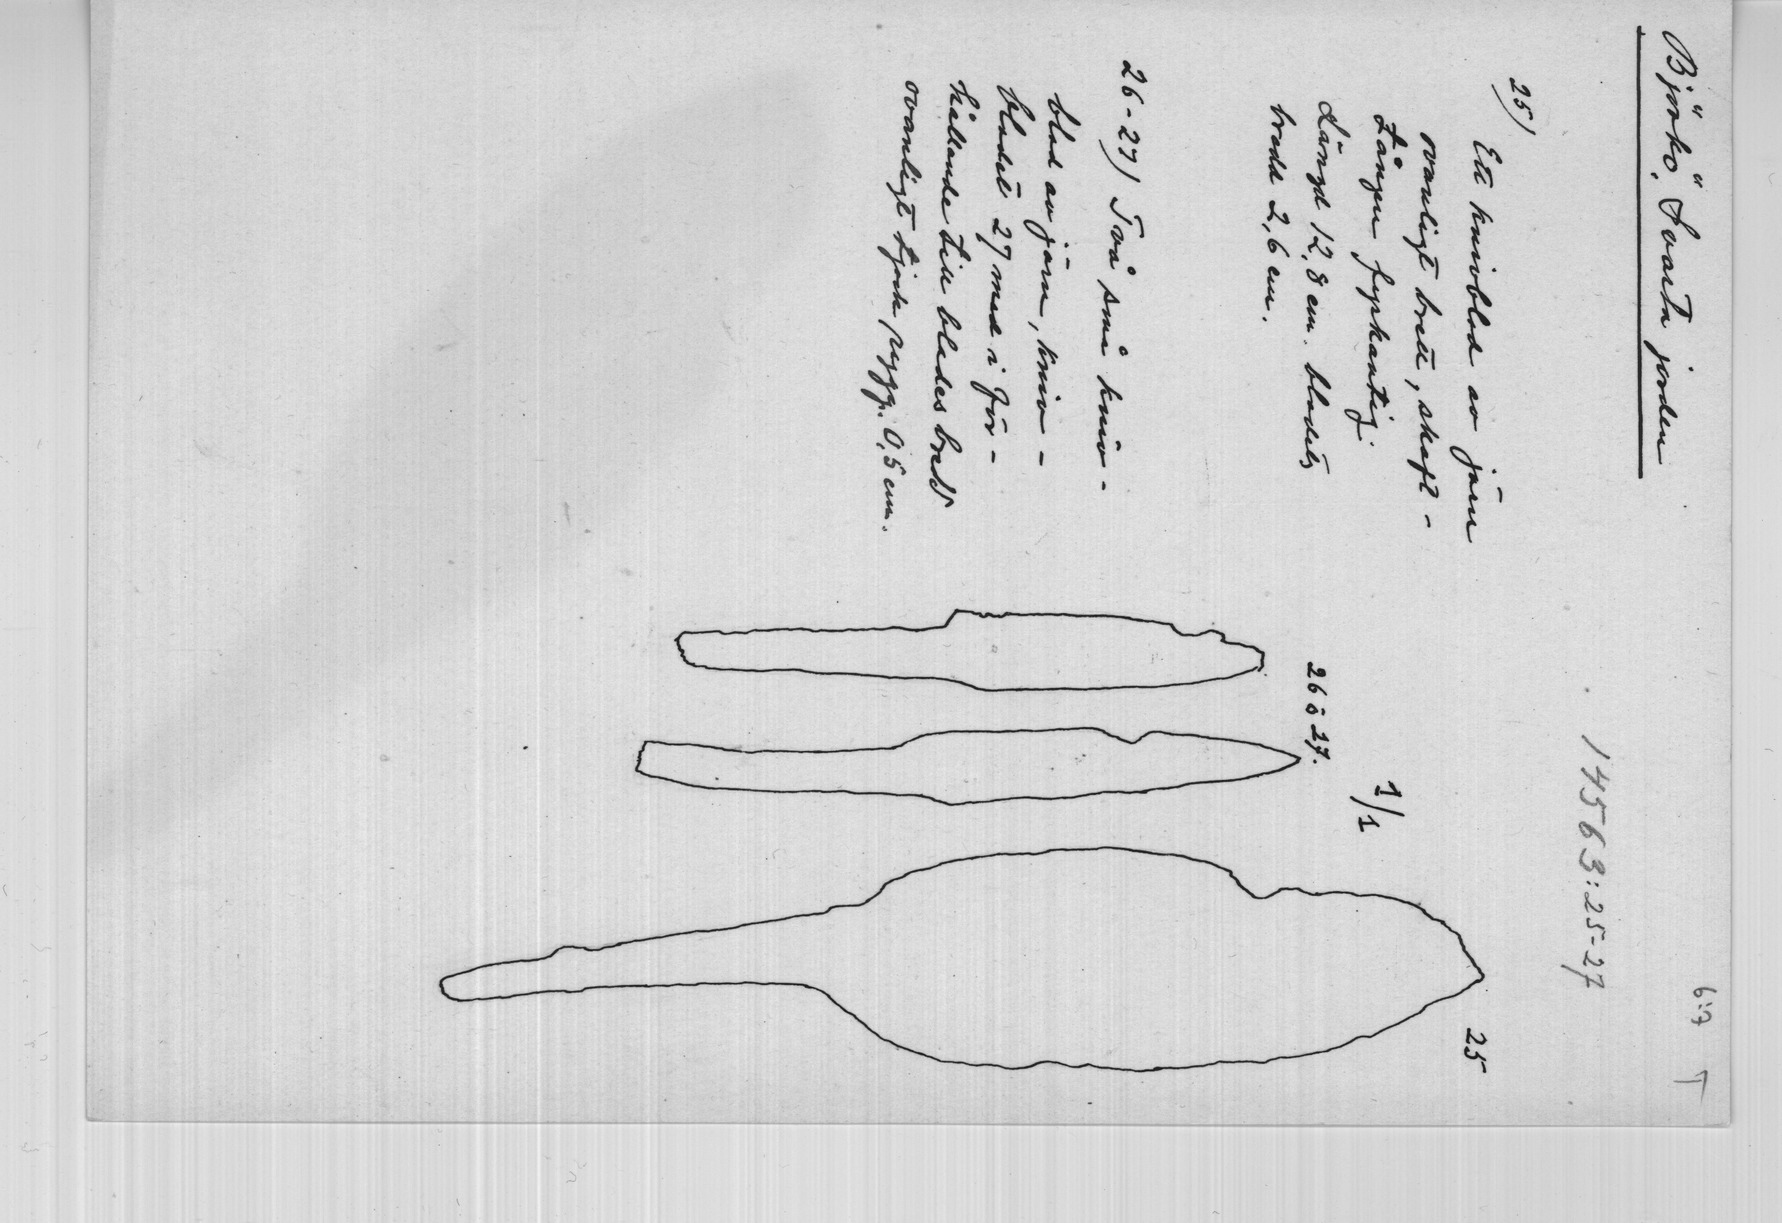 Björkö, Svarta jorden
6:7
T
14563:25-27
25)
Ett knivblad av järn
ovanligt brett, skaft-
tången fyrkantig.
Längd 12,8 cm. bladets
bredd 2,6 cm.
26-27) Två små kniv-
blad av järn, kniv-
bladet 27 med i för-
hållande till bladets bredd
ovanligt tjock rygg. 0,5 cm.
1/1
26 o 27.
25